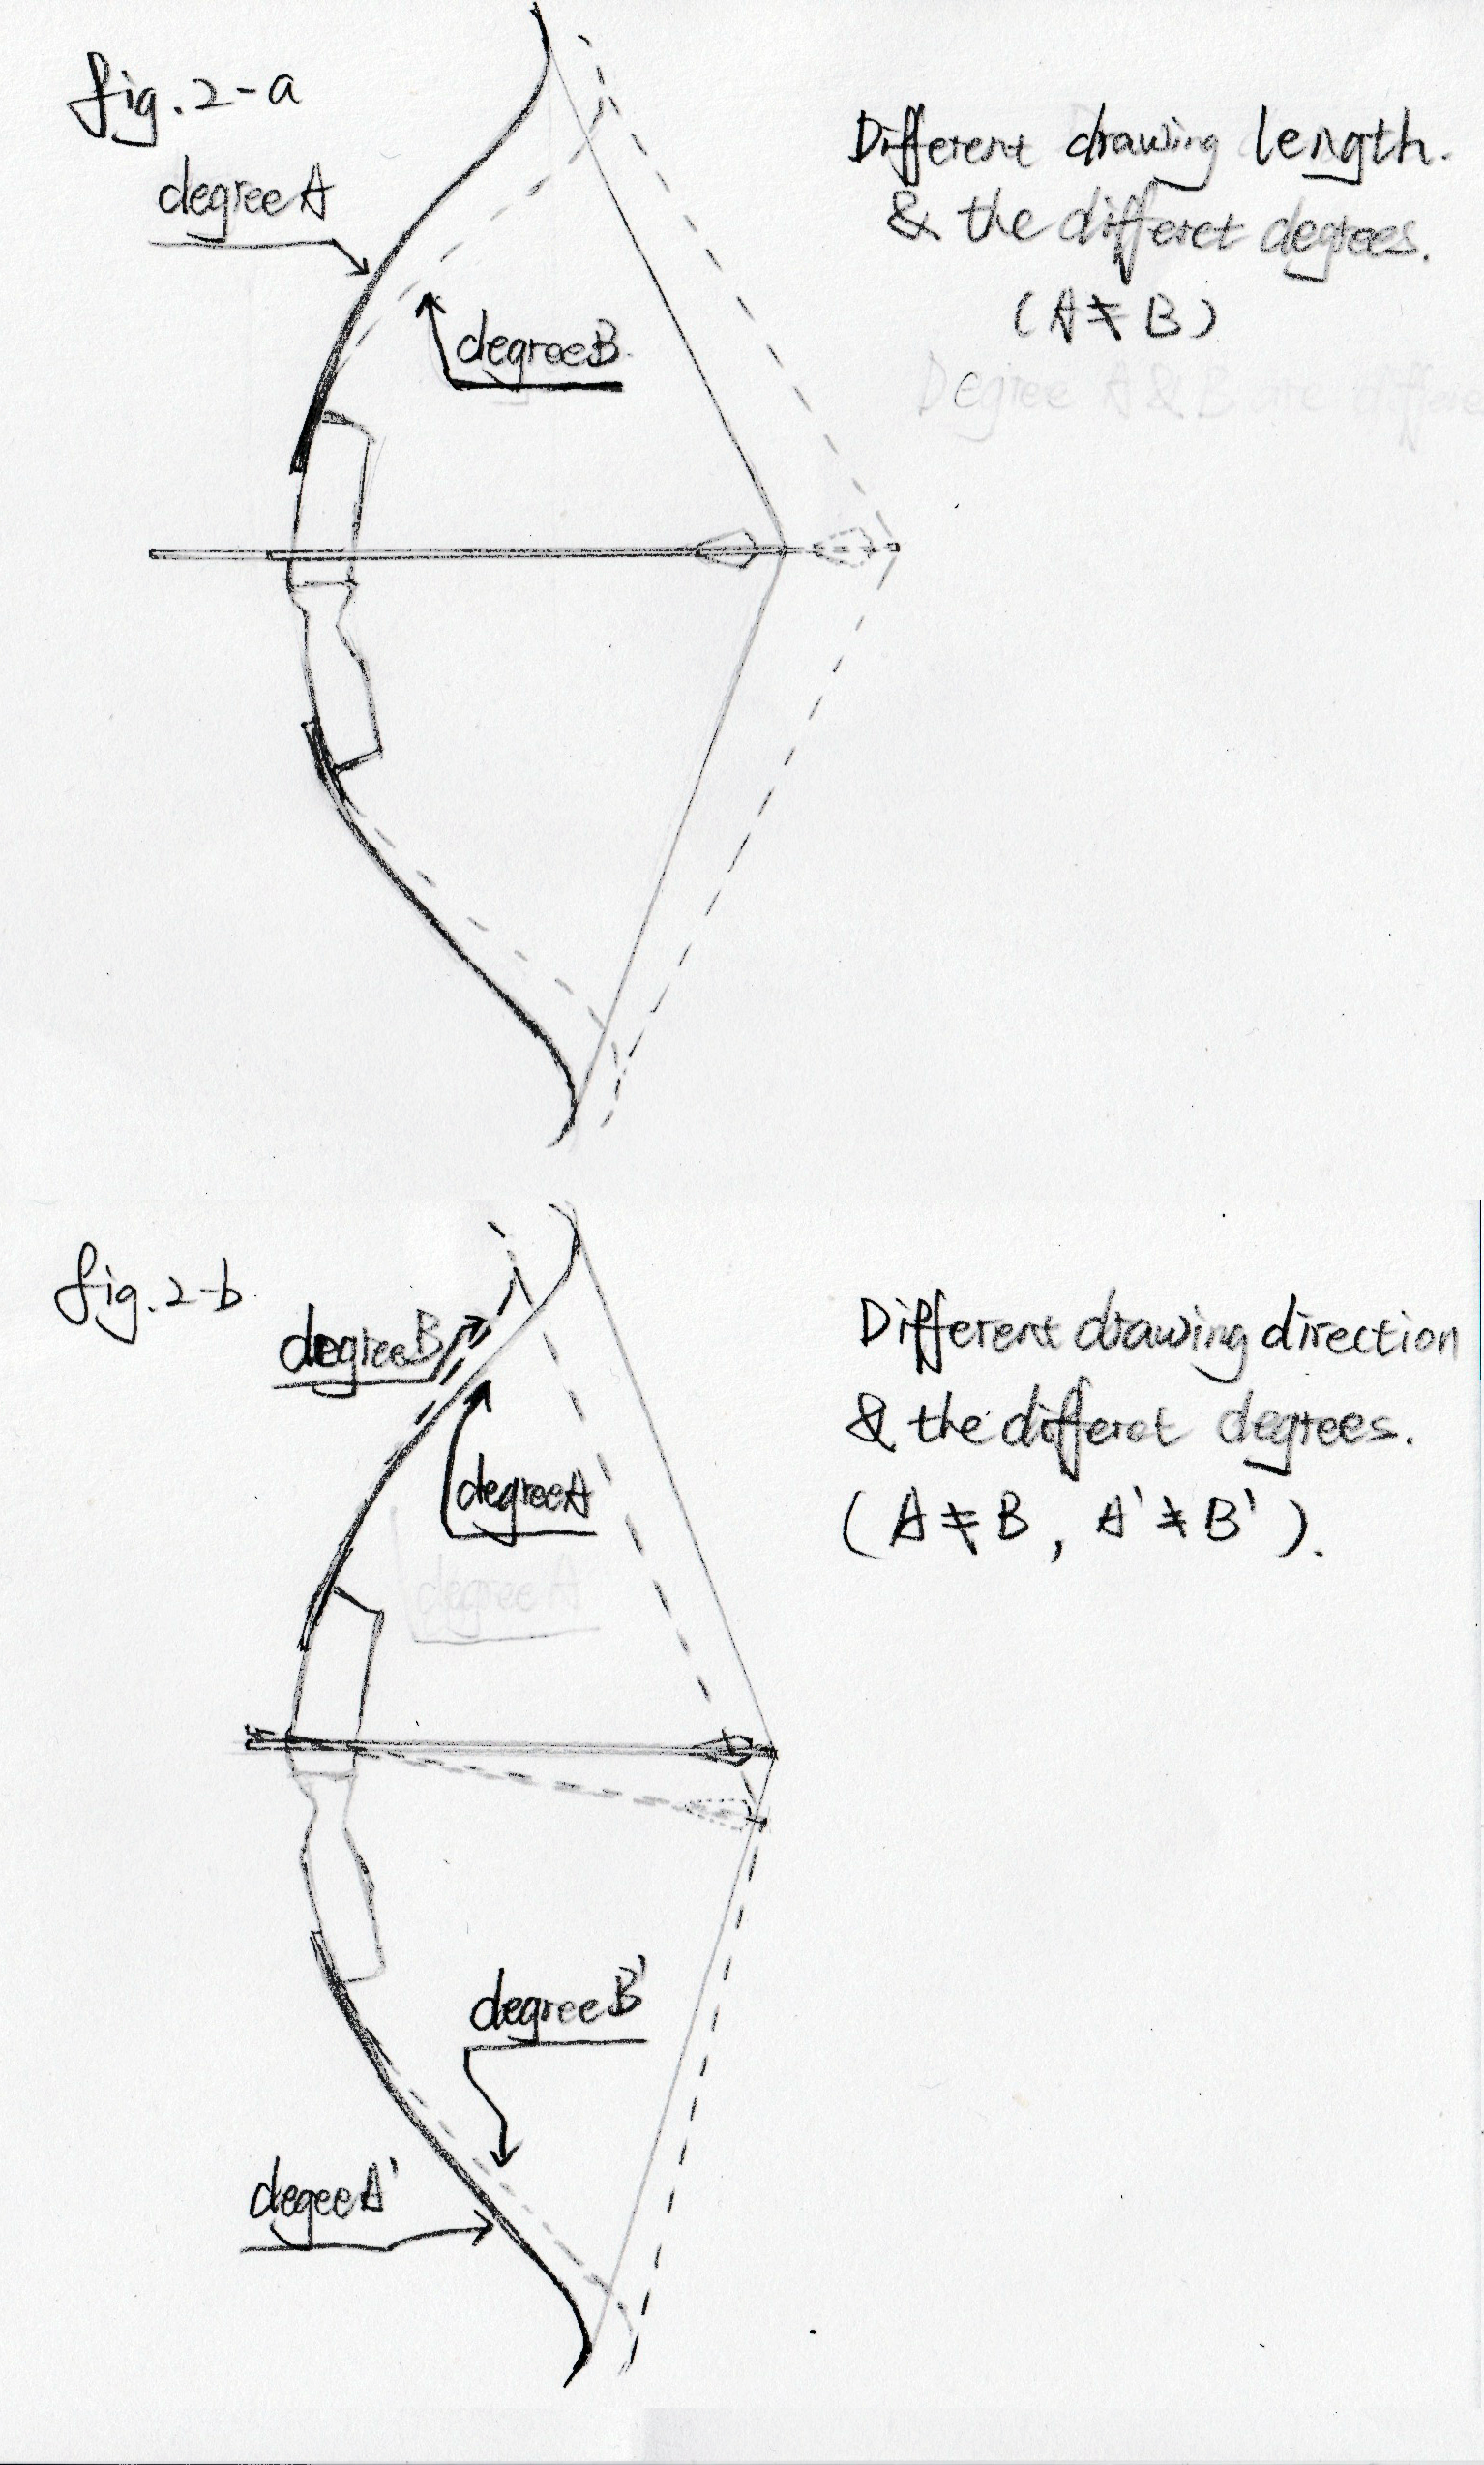 fig. 2-a
degree A
degree B
Different drawing length.
& the differet degrees.
(A ≠ B)
Degree A & B are differe
fig. 2-b
degree B
degree A
degree A
Different drawing direction
& the differet degrees.
(A ≠ B, A' ≠ B').
degree B'
degee A'